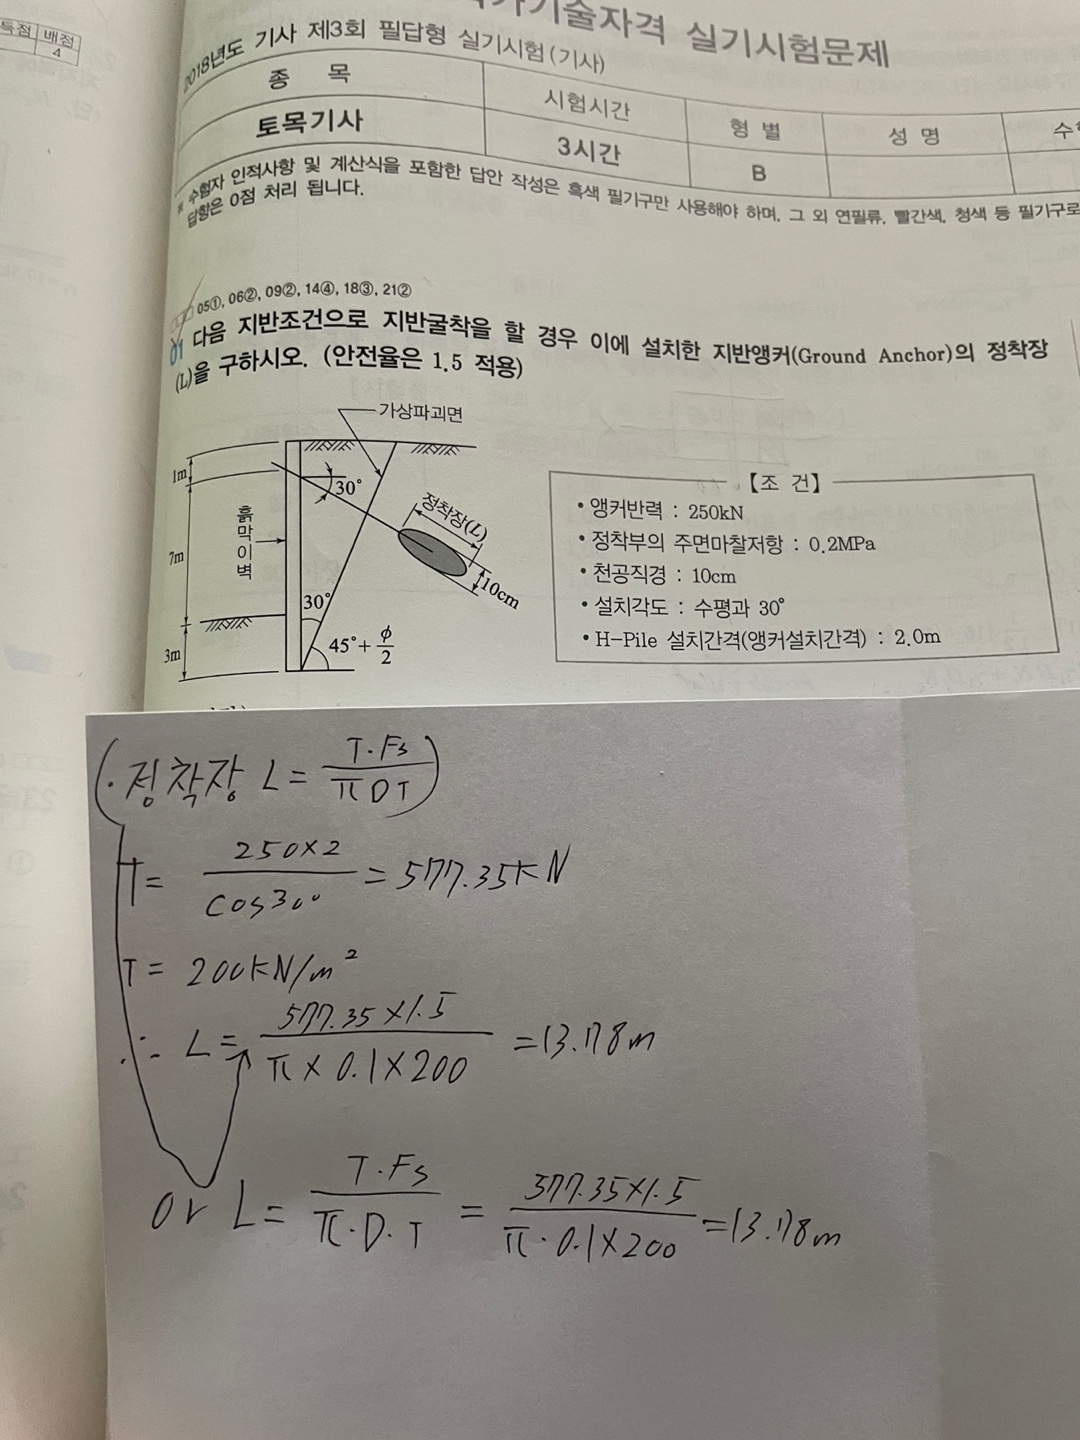 득점 배점
4
국가기술자격 실기시험문제
2018년도 기사 제3회 필답형 실기시험(기사)
종 목 시험시간 형 별 성 명 수험
토목기사 3시간 B
※ 수험자 인적사항 및 계산식을 포함한 답안 작성은 흑색 필기구만 사용해야 하며, 그 외 연필류, 빨간색, 청색 등 필기구로
답항은 0점 처리 됩니다.
05①, 06②, 09②, 14④, 18③, 21②
01 다음 지반조건으로 지반굴착을 할 경우 이에 설치한 지반앵커(Ground Anchor)의 정착장
(L)을 구하시오. (안전율은 1.5 적용)
가상파괴면
1m
30°
정착장(L)
흙막이벽
7m
10cm
30°
45°+φ/2
3m
【조 건】
• 앵커반력 : 250kN
• 정착부의 주면마찰저항 : 0.2MPa
• 천공직경 : 10cm
• 설치각도 : 수평과 30°
• H-Pile 설치간격(앵커설치간격) : 2.0m
(·정착장 L = T·Fs / πDT)
T = 250×2 / cos30° = 577.35kN
T = 200kN/m²
∴ L = 577.35×1.5 / π×0.1×200 = 13.78m
or L = T·Fs / π·D·T = 577.35×1.5 / π·0.1×200 = 13.78m